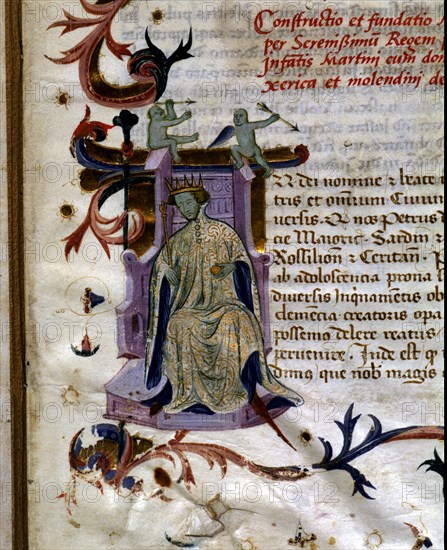 Constructio et fundatio
per Serenißimū Regem
Infātis Martini eum don
xerica et molendini de
N dei nomine & beate
tris et omnium Ciuiu
uersis. Q nos Petrus
cie Maioric. Sardin
Rossilion & Ceritan. P
ab adoloscencia prona
diuersis Inqnamentis ob
clemencia creatoris opa
possemo delere reatus
peruenire. Inde est q
dimq que nob magis